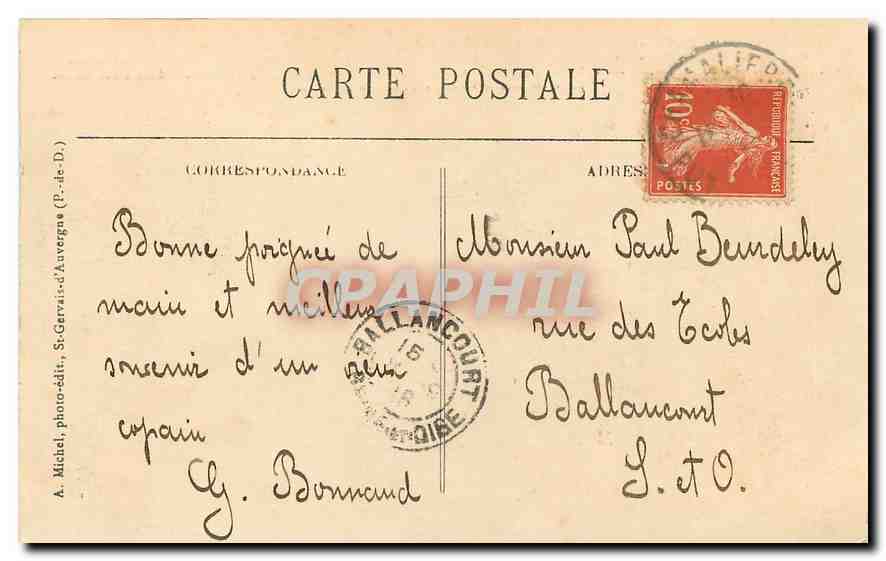 CARTE POSTALE
CORRESPONDANCE
ADRES
10c
REPUBLIQUE FRANÇAISE
POSTES
A. Michel, photo-édit., St-Gervais-d'Auvergne (P.-de-D.)
Bonne poignée de
main et meilleur
souvenir d'un vieux
copain
G. Bonnaud
BALLANCOURT
SEINE-ET-OISE
Monsieur Paul Beurdeley
rue des Ecoles
Ballancourt
S. et O.
CPAPHIL